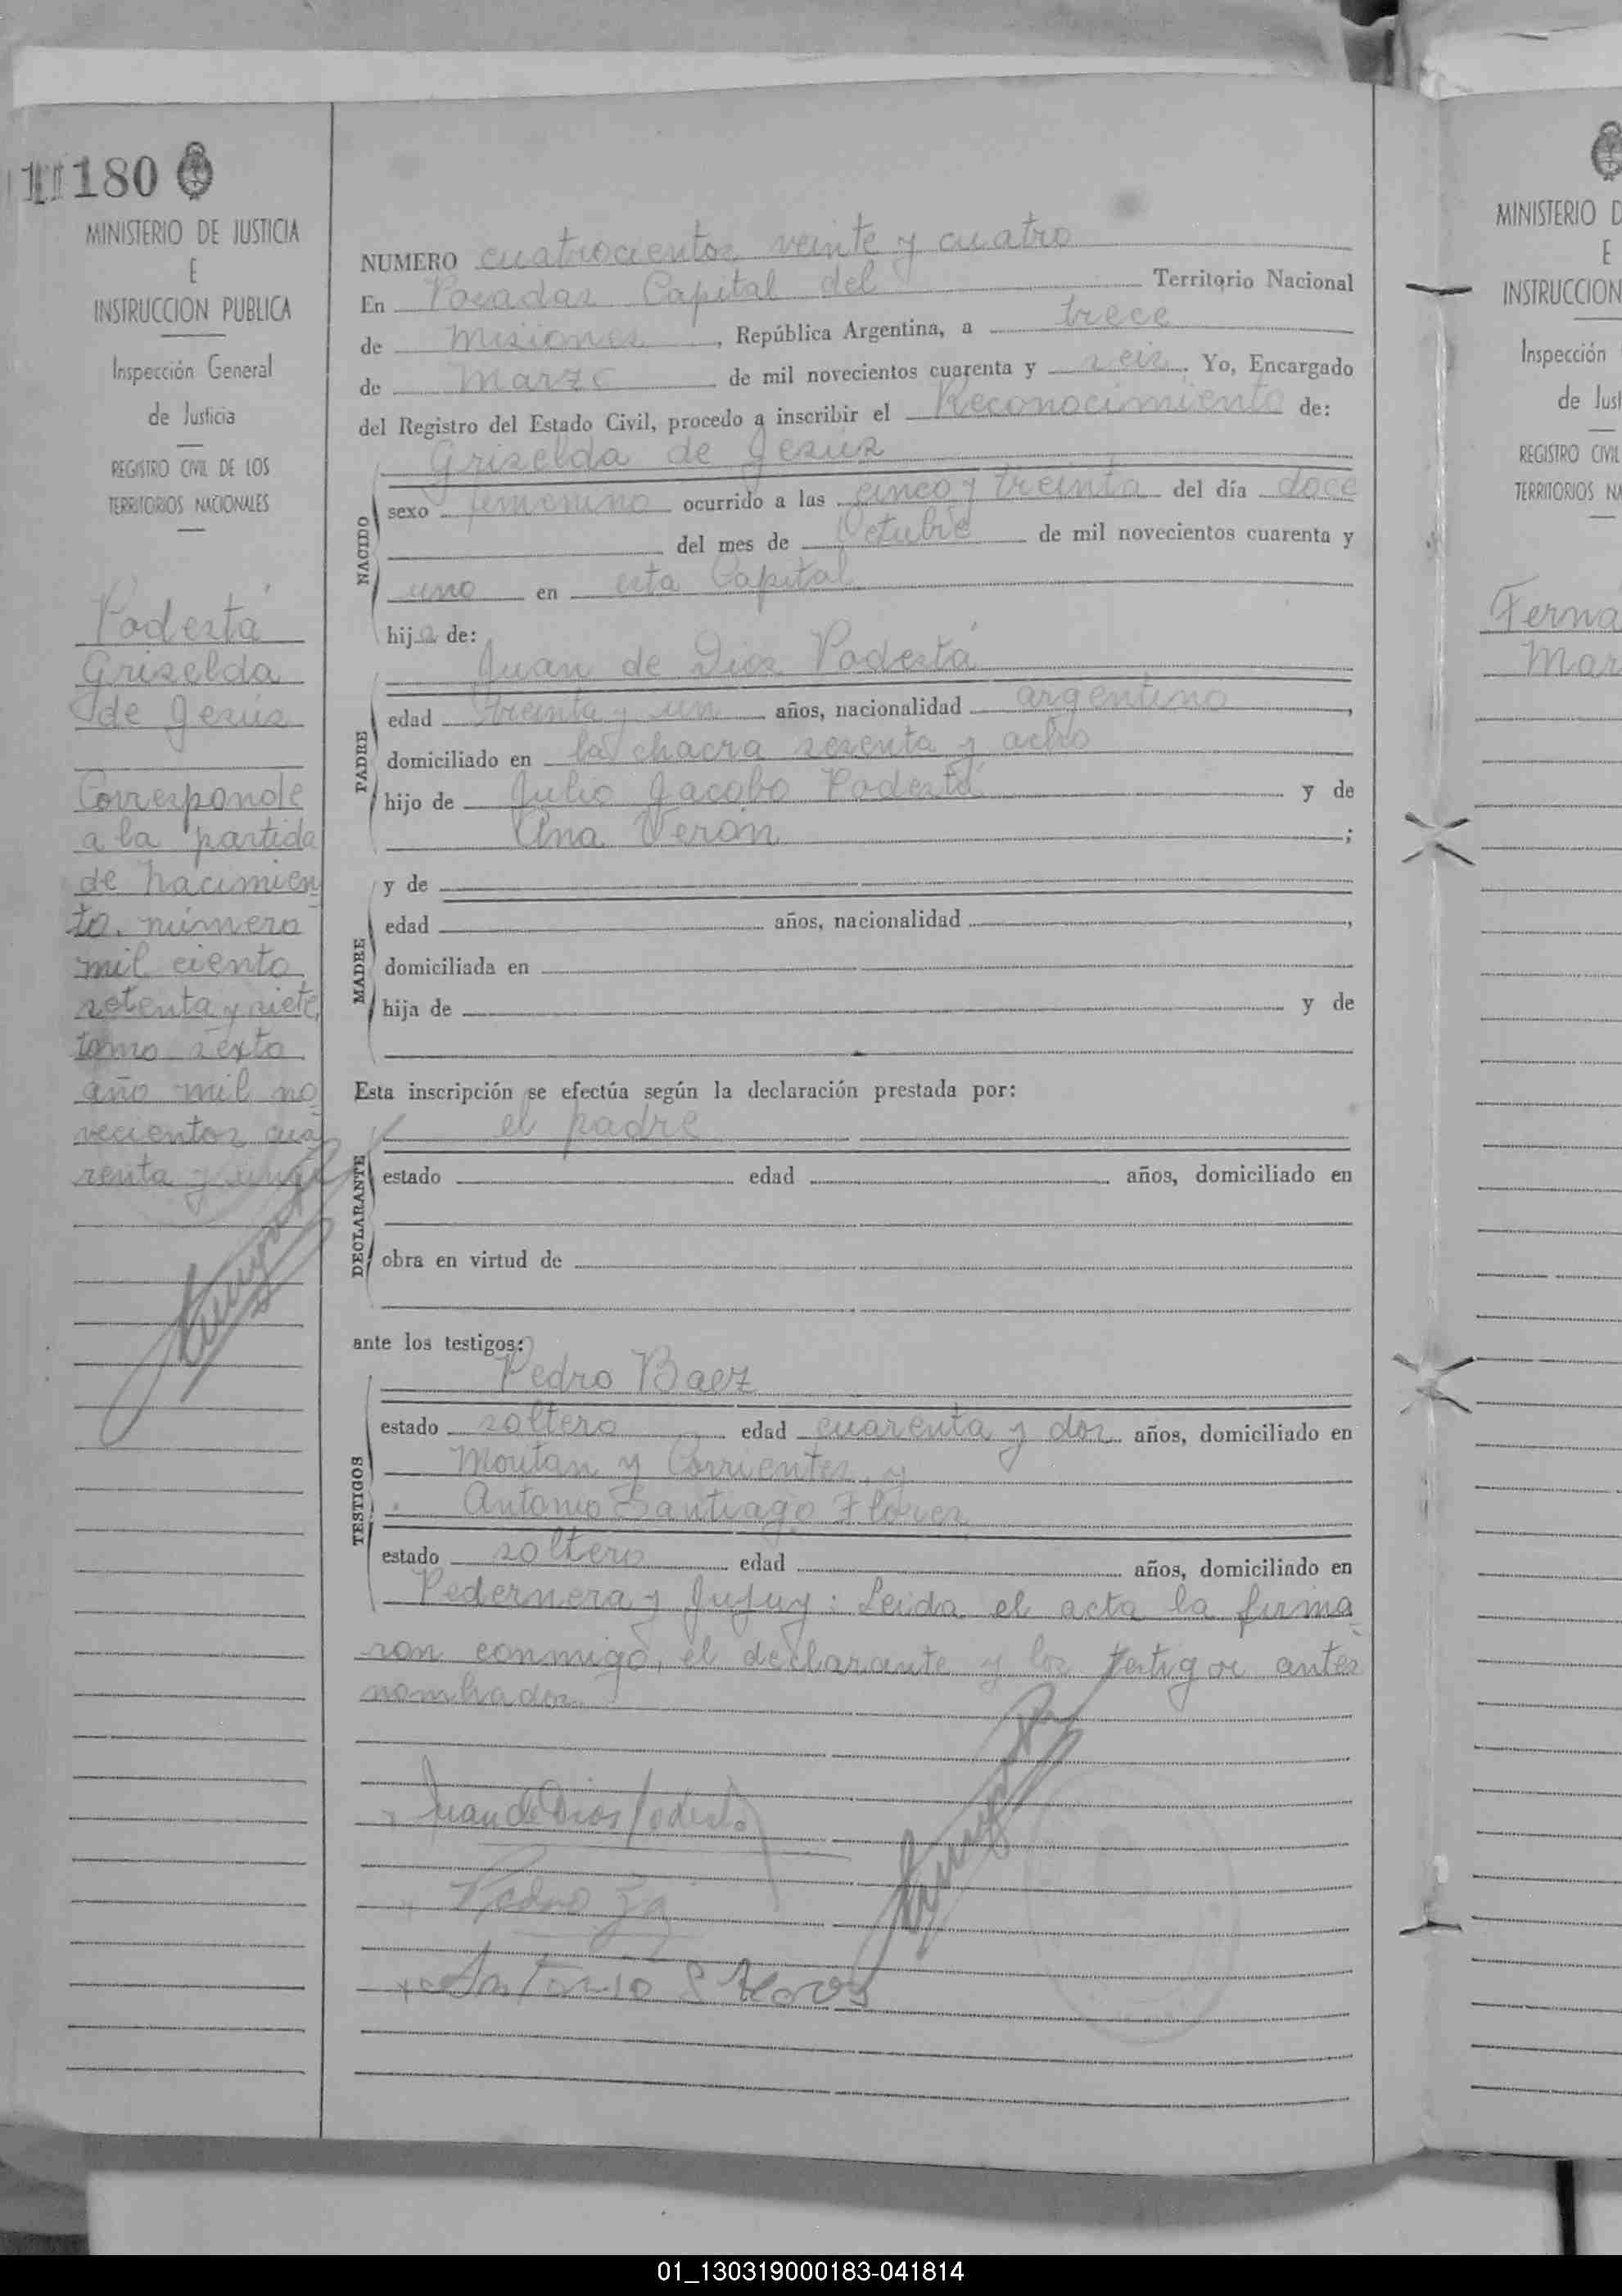 180
MINISTERIO DE JUSTICIA
E
INSTRUCCION PUBLICA
Inspección General
de Justicia
REGISTRO CIVIL DE LOS
TERRITORIOS NACIONALES
Podestá
Griselda
de Jesús
Corresponde
a la partida
de nacimien
to. número
mil ciento
setenta y siete,
tomo sexto
año mil no
vecientos cua
renta y uno
NUMERO cuatrocientos veinte y cuatro
En Posadas Capital del Territorio Nacional
de Misiones, República Argentina, a trece
de Marzo de mil novecientos cuarenta y seis. Yo, Encargado
del Registro del Estado Civil, procedo a inscribir el Reconocimiento de:
Griselda de Jesús
NACIDO
sexo femenino ocurrido a las cinco y treinta del día doce
del mes de Octubre de mil novecientos cuarenta y
uno en esta Capital
hija de:
PADRE
Juan de Dios Podestá
edad treinta y un años, nacionalidad argentino,
domiciliado en la chacra sesenta y ocho
hijo de Julio Jacobo Podestá y de
Ana Verón ;
MADRE
y de
edad años, nacionalidad ,
domiciliada en
hija de y de
Esta inscripción se efectúa según la declaración prestada por:
el padre
DECLARANTE
estado edad años, domiciliado en
obra en virtud de
ante los testigos:
TESTIGOS
Pedro Baez
estado soltero edad cuarenta y dos años, domiciliado en
Moutan y Corrientes, y
Antonio Santiago Flores
estado soltero edad años, domiciliado en
Pedernera y Jujuy: Leida el acta la firma
ron conmigo, el declarante y los testigos antes
nombrados.
Juan de Dios Podestá
Pedro
Antonio S Flores
MINISTERIO D
E
INSTRUCCION
Inspección
de Just
REGISTRO CIVIL
TERRITORIOS NA
Ferna
Mar
01_130319000183-041814